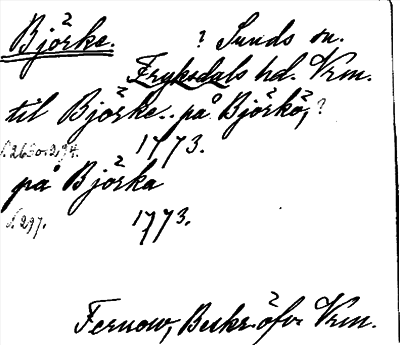 Björke. ? Sunds sn.
Fryksdals hd. Vrm.
til Björke.. på Björkö, ?
s. 263 o. 294. 1773.
på Björka
s. 297. 1773.
Fernow, Beskr. öfv. Vrm.